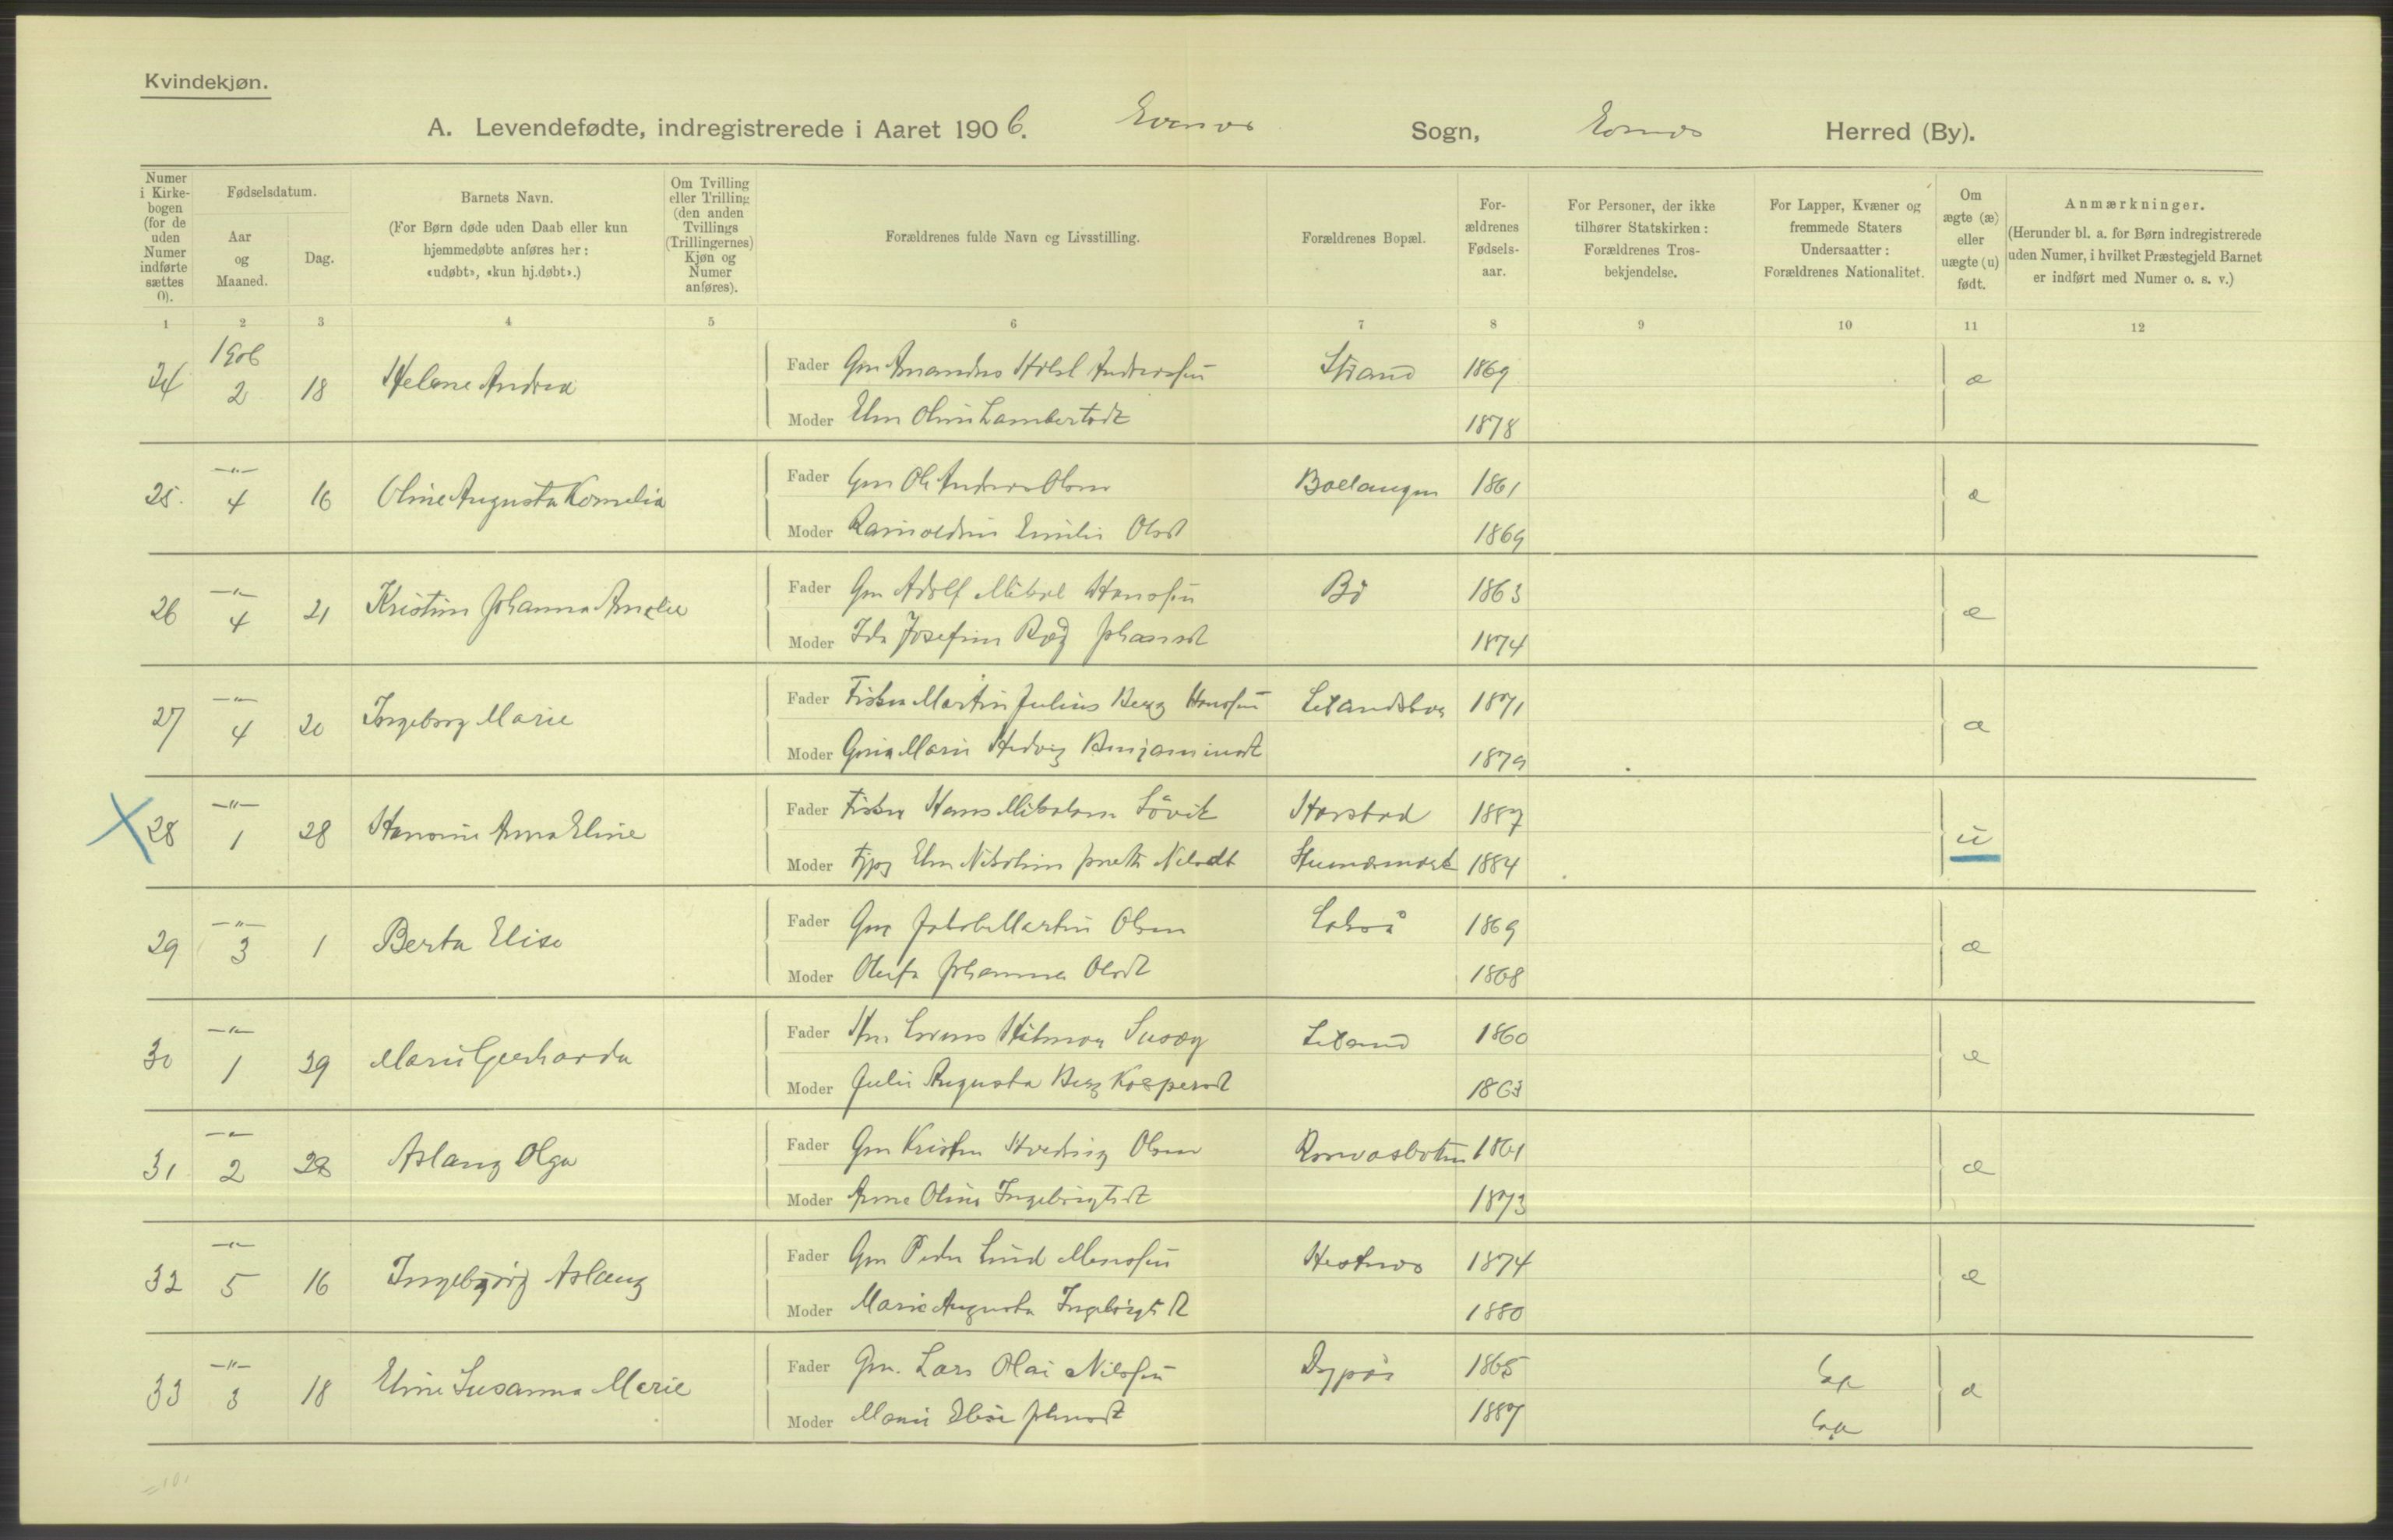 Kvindekjøn.
A. Levendefødte, indregistrerede i Aaret 1906. Evenes Sogn, Evenes Herred (By).
Numer i Kirkebogen (for de uden Numer indførte sættes 0).
Fødselsdatum.
Aar og Maaned.
Dag.
Barnets Navn.
(For Børn døde uden Daab eller kun hjemmedøbte anføres her: «udøbt», «kun hj.døbt».)
Om Tvilling eller Trilling (den anden Tvillings (Trillingernes) Kjøn og Numer anføres).
Forældrenes fulde Navn og Livsstilling.
Forældrenes Bopæl.
Forældrenes Fødselsaar.
For Personer, der ikke tilhører Statskirken: Forældrenes Trosbekjendelse.
For Lapper, Kvæner og fremmede Staters Undersaatter: Forældrenes Nationalitet.
Om ægte (æ) eller uægte (u) født.
Anmærkninger.
(Herunder bl. a. for Børn indregistrerede uden Numer, i hvilket Præstegjeld Barnet er indført med Numer o. s. v.)
1 2 3 4 5 6 7 8 9 10 11 12
24 1906 2 18 Helene Andrea Fader Gm Amandus Holst Anderssen Strand 1869 æ
Moder Elen Oline Lambertsdt 1878
25. —"— 4 16 Oline Augusta Kornelia Fader Gm Ole Andreas Olsen Boelangen 1861 æ
Moder Emilie Olsdt 1869
26 —"— 4 21 Kristine Johanna Amelie Fader Gm Adolf Mikal Hanssen Bø 1863 æ
Moder Ida Josefine Johansdt 1874
27 —"— 4 20 Ingeborg Marie Fader Fisker Martin Julius Berg Hanssen 1871 æ
Moder Marie Hedvig Benjaminsdt 1879
28 —"— 1 28 Hansine Anna Eline Fader Fisker Hans Løvik Harstad 1887 u
Moder Elen Nikoline Nilsdt 1884
29 —"— 3 1 Berta Elise Fader Gm Jakob Martin Olsen 1869 æ
Moder Olufa Johanna Olsdt 1868
30 —"— 1 29 Marie Gerharda Fader Hilmar Liland 1860 æ
Moder Julie Augusta Berg Kaspersdt 1863
31 —"— 2 28 Aslaug Olga Fader Gm Kristen Olsen 1861 æ
Moder Anna Oline Ingebrigtsdt 1873
32 —"— 5 16 Ingebjørg Aslaug Fader Gm Peder Lind Monssen Hestnes 1874 æ
Moder Marie Augusta Ingebrigtsdt 1880
33 —"— 3 18 Eline Susanna Marie Fader Gm. Lars Olai Nilssen 1865 Lap æ
Moder Marie Elise Johnsdt 1887 Lap